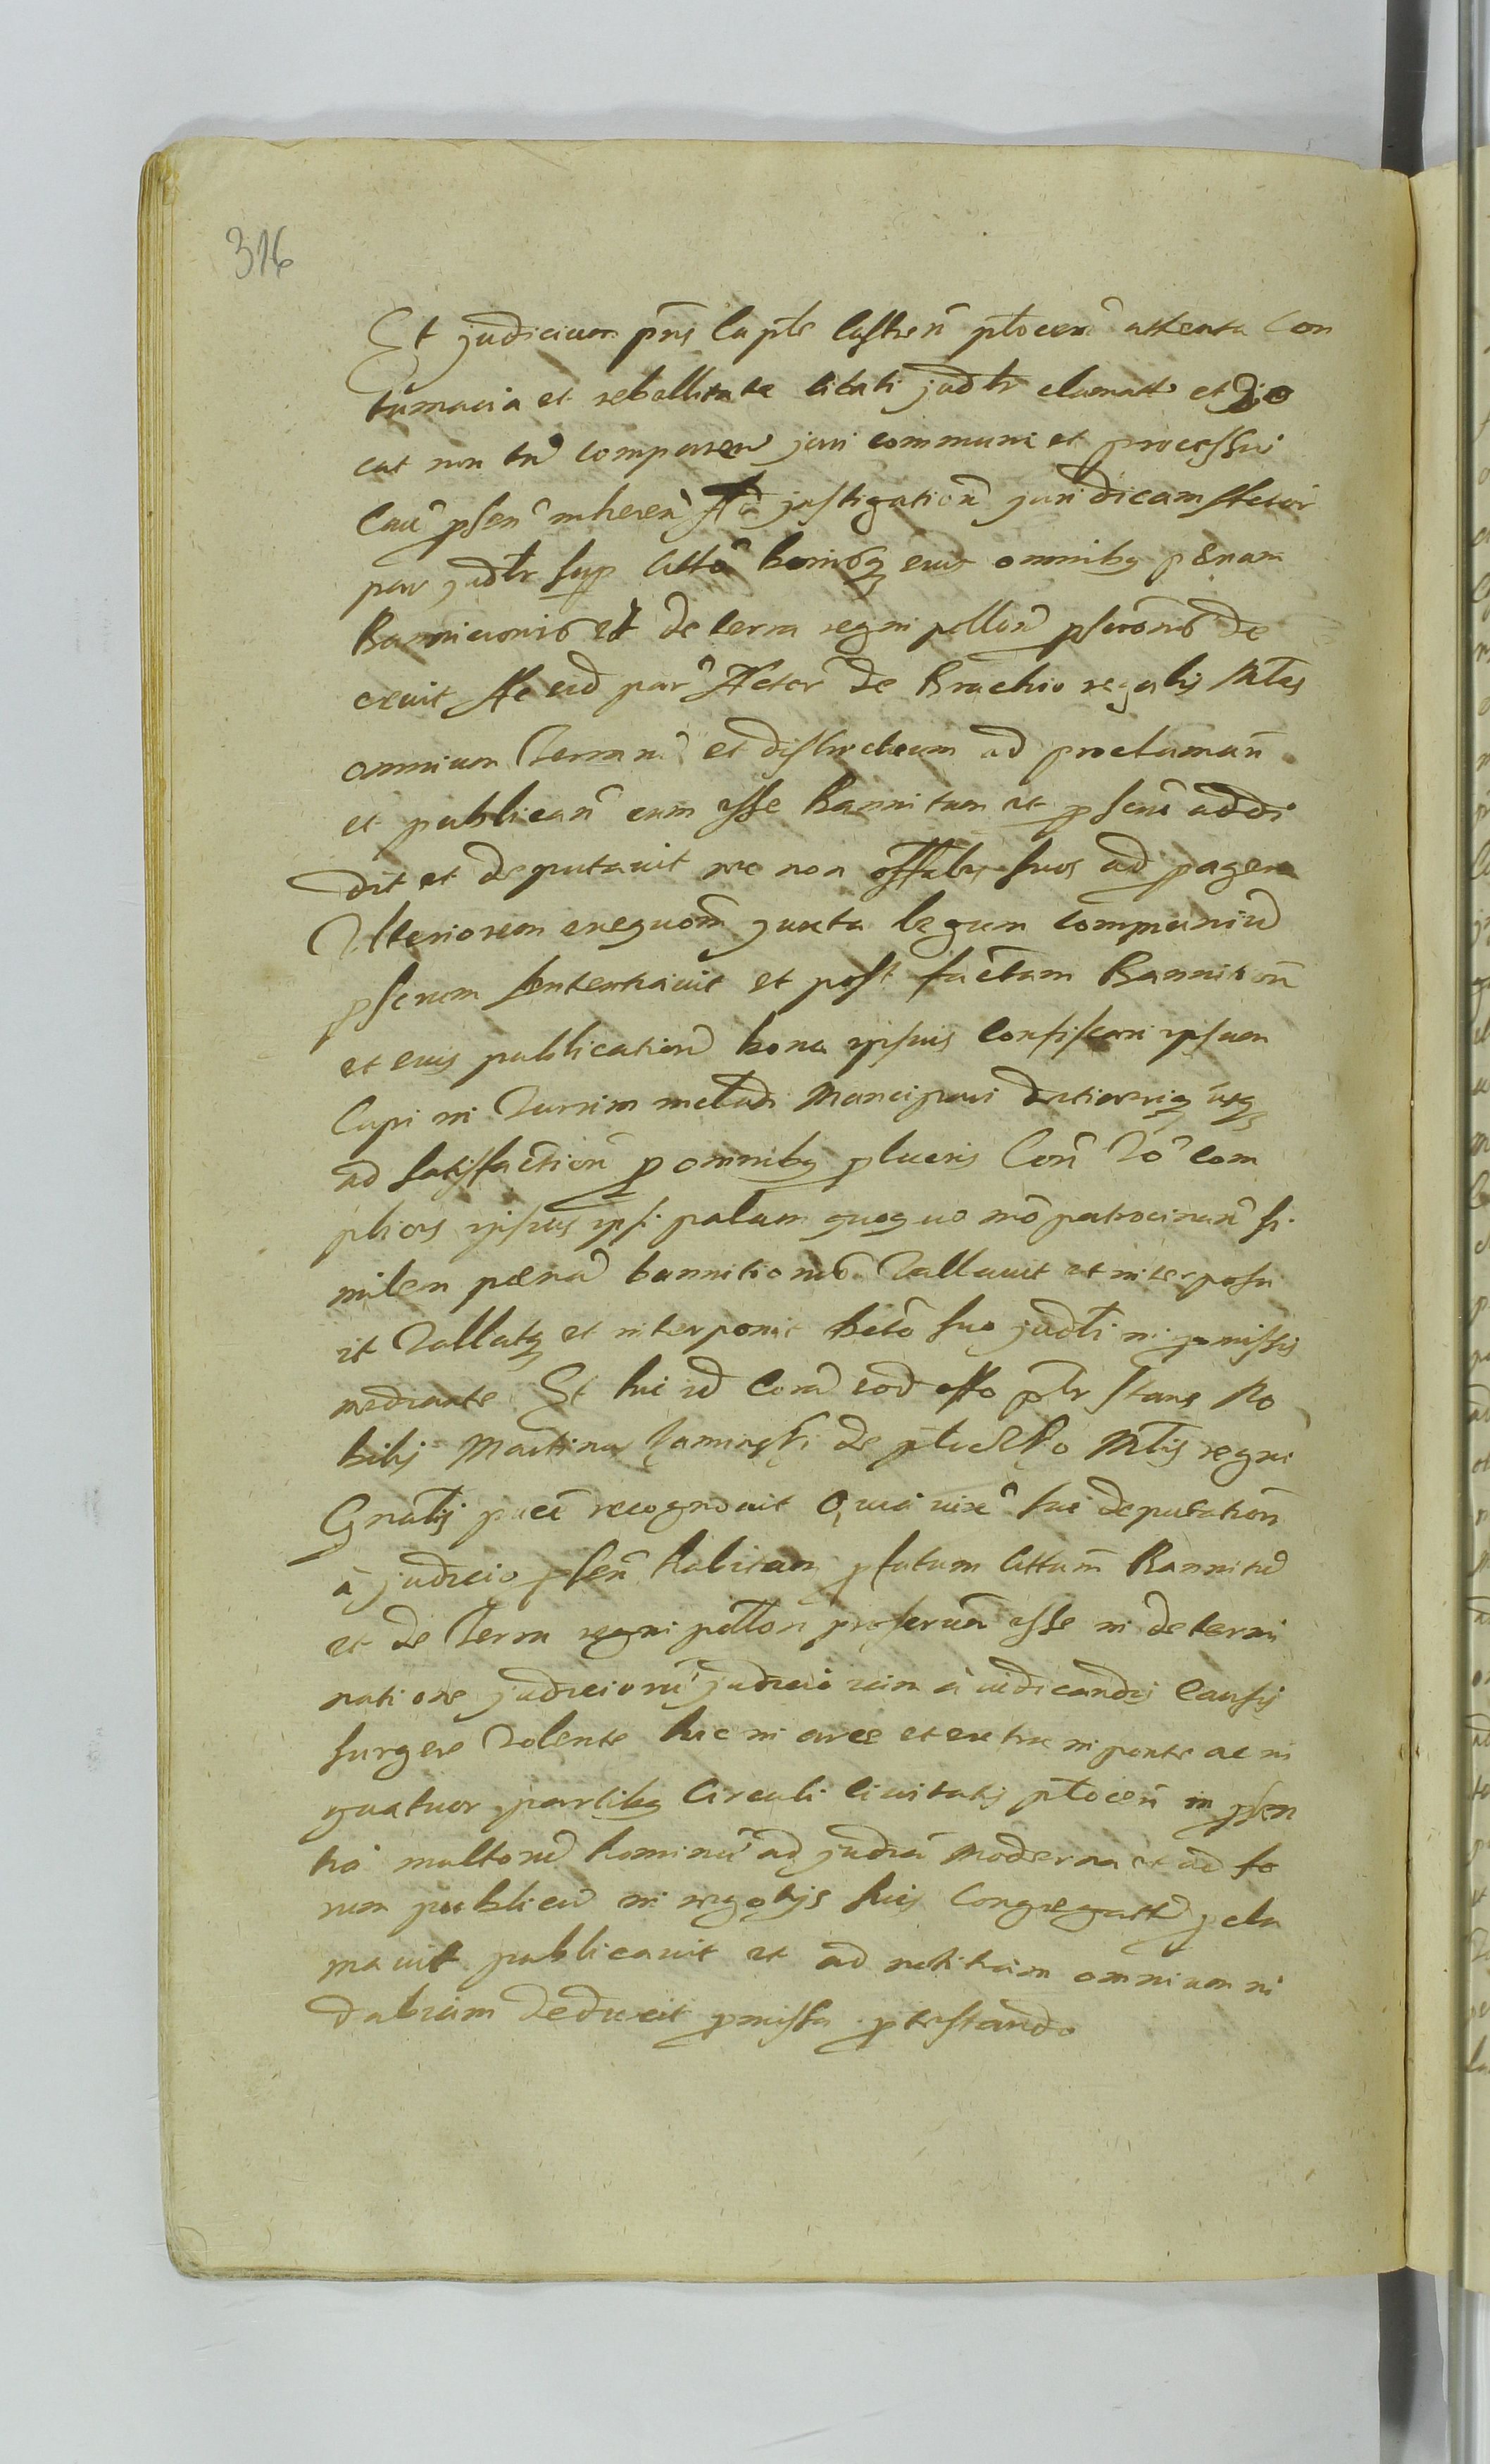 316
Et judicium pñs Capłe Castreñ płoceñ attenta Con
tumacia et rebellitate citati judłr clamati et
cat non tñ comparen juri communi et processui
Cauẽ pseñ inhereñ Ad jnstigationẽ juridicam Actor
par judłr sup Cittõ bonisq eius omnibq penam
Bannicionis et de terra regni pollon pscrõnis de
crevit Ac eid par Actor de Brachio regalis Mtis
omnium Terraru et districtuum ad proclamañ
et publicañ eum esse bannitum et pscriũ addi
dit et deputavit nec non offales suos ad pagen
Ulteriorem exequõm juxta legum communiũ
pscrum sententiavit et post factam Bannitõñ
et eius publicationẽ bona ipsius confiscari ipsum
Capi in Turrim includi Mancipari detineriq usq
ad satisfactionẽ p omnibq plucris Coñ Võ com
plices ipsius ipsi palam quoquo mõ patrocinañ si
milem pœnã bannitionis Vallavit et interposu
it Vallatq et interponit decto suo judłi in pmissis
mediante Et hic id Corã eod offo płr stans No
bilis Martinus de Mtis regni
Gnałis recognovit Quia vixẽ sue deputationẽ
à judicio pseñ habitam pfatum Cittum Bannitũ
et de Terra regni pollon proscriuũ esse in determi
natione judiciorũ judicio iam à iudicandis causis
surgere Volente hic in arce et extra in ponte ac in
quatuor partibq Circuli civitatis płoceñ in psen
tia multorũ hominũ ad judicia moderna et ad fo
rum publicũ in negotijs suis Congregattũ pcla
mavit publicavit et ad notitiam omnium in
dubiam deduxit pmissa ptestando